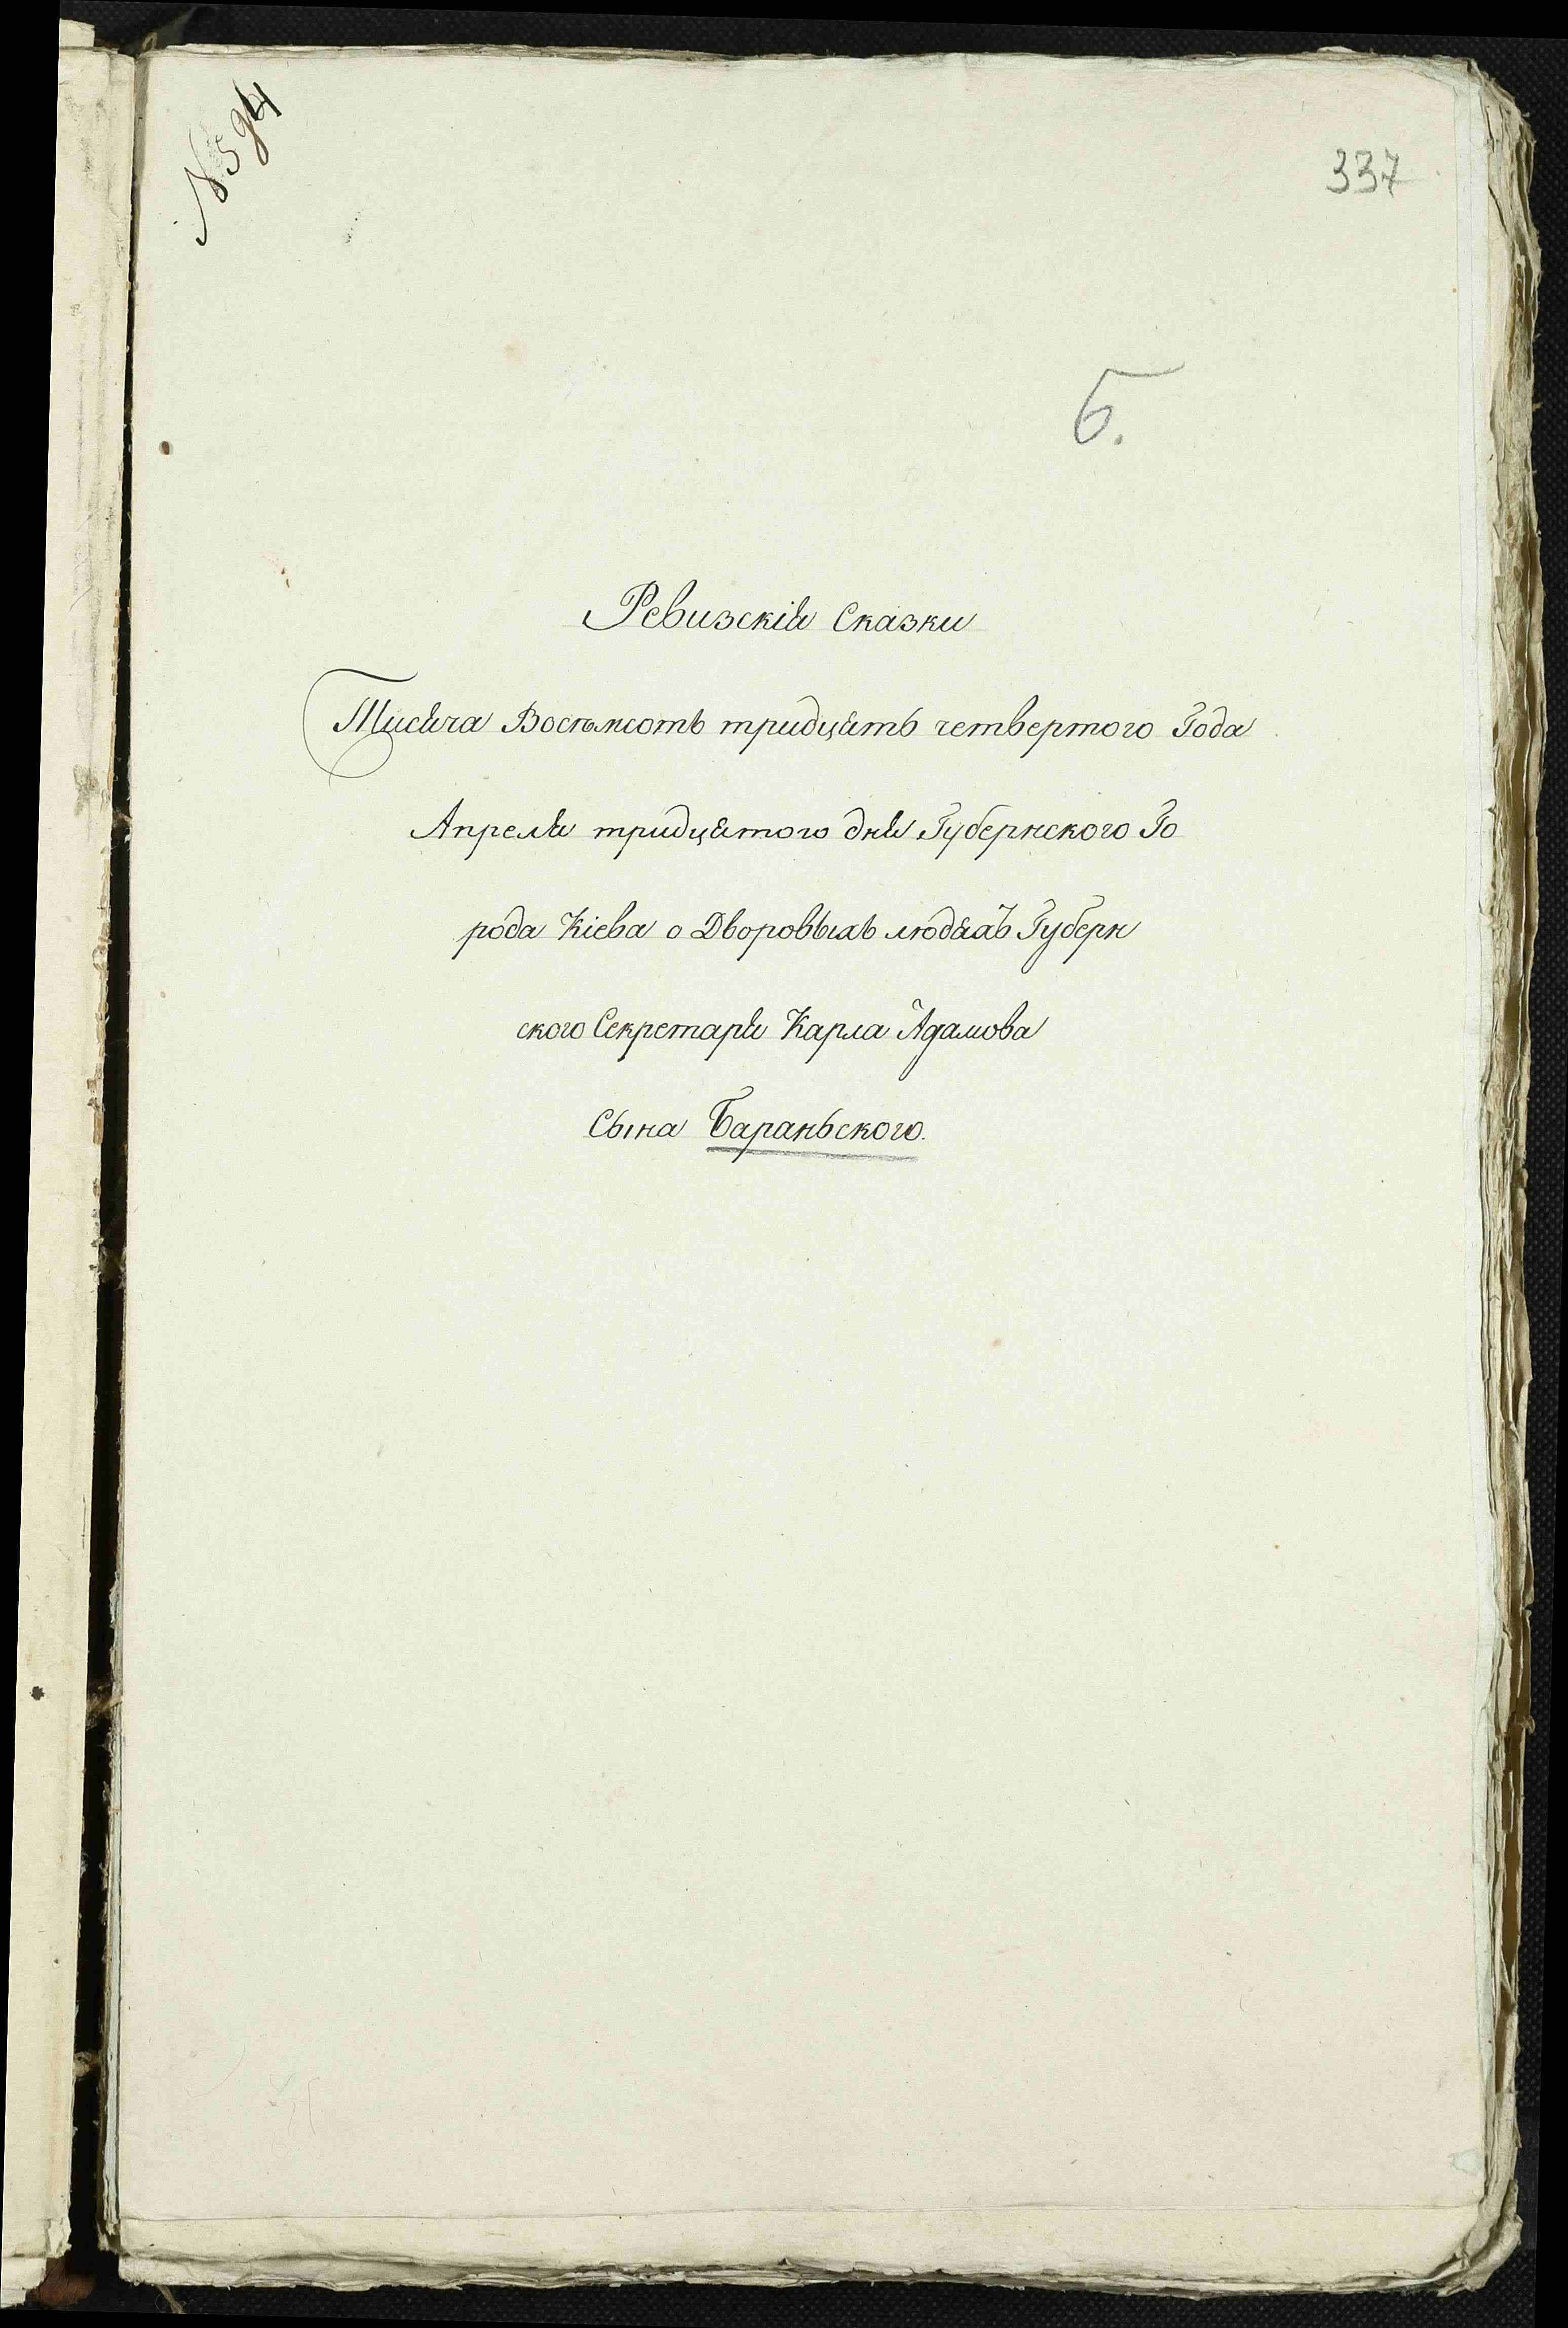 № 594
337
Б.
Ревизскія Сказки
Тисяча Восѣмсотъ тридцять четвертого Года
Апреля тридцятого дня Губернского Го
рода Кіева о Дворовыхъ людяхъ Губерн
ского Секретаря Карла Адамова
Сына Бараньского.